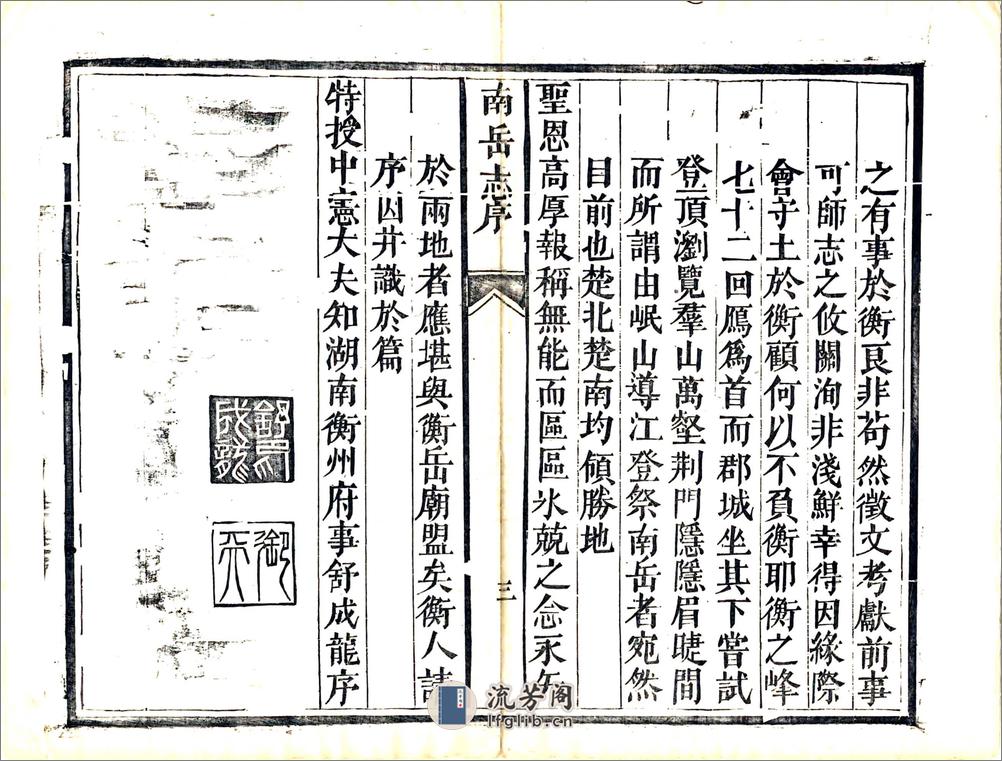 之有事於衡良非苟然徵文考獻前事
可師志之攸關洵非淺鮮幸得因緣際
會守土於衡顧何以不負衡耶衡之峰
七十二回鴈為首而郡城坐其下嘗試
登頂瀏覽羣山萬壑荆門隱隱眉睫間
而所謂由岷山導江登祭南岳者宛然
目前也楚北楚南均領勝地
聖恩高厚報稱無能而區區氷兢之念永矢
南岳志序
三
於兩地者應堪與衡岳廟盟矣衡人請
序因并識於篇
特授中憲大夫知湖南衡州府事舒成龍序
舒印成龍
御天
流芳阁
lfglib.cn